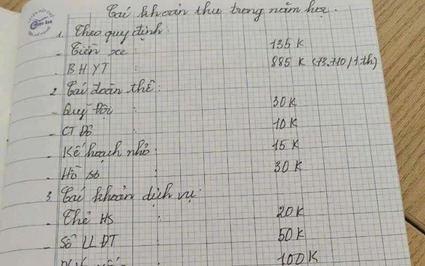 Các khoản thu trong năm học
1. Theo quy định:
- Tiền xe : 135 K
- BHYT : 885 K (73.710/1.th)
2. Các đoàn thể:
- Quỹ Đội : 30 K
- CT Đỏ : 10 K
- Kế hoạch nhỏ : 15 K
- Hồ sơ : 30 K
3. Các khoản dịch vụ:
- Thẻ HS : 20 K
- Sổ LLĐT : 50 K
100 K